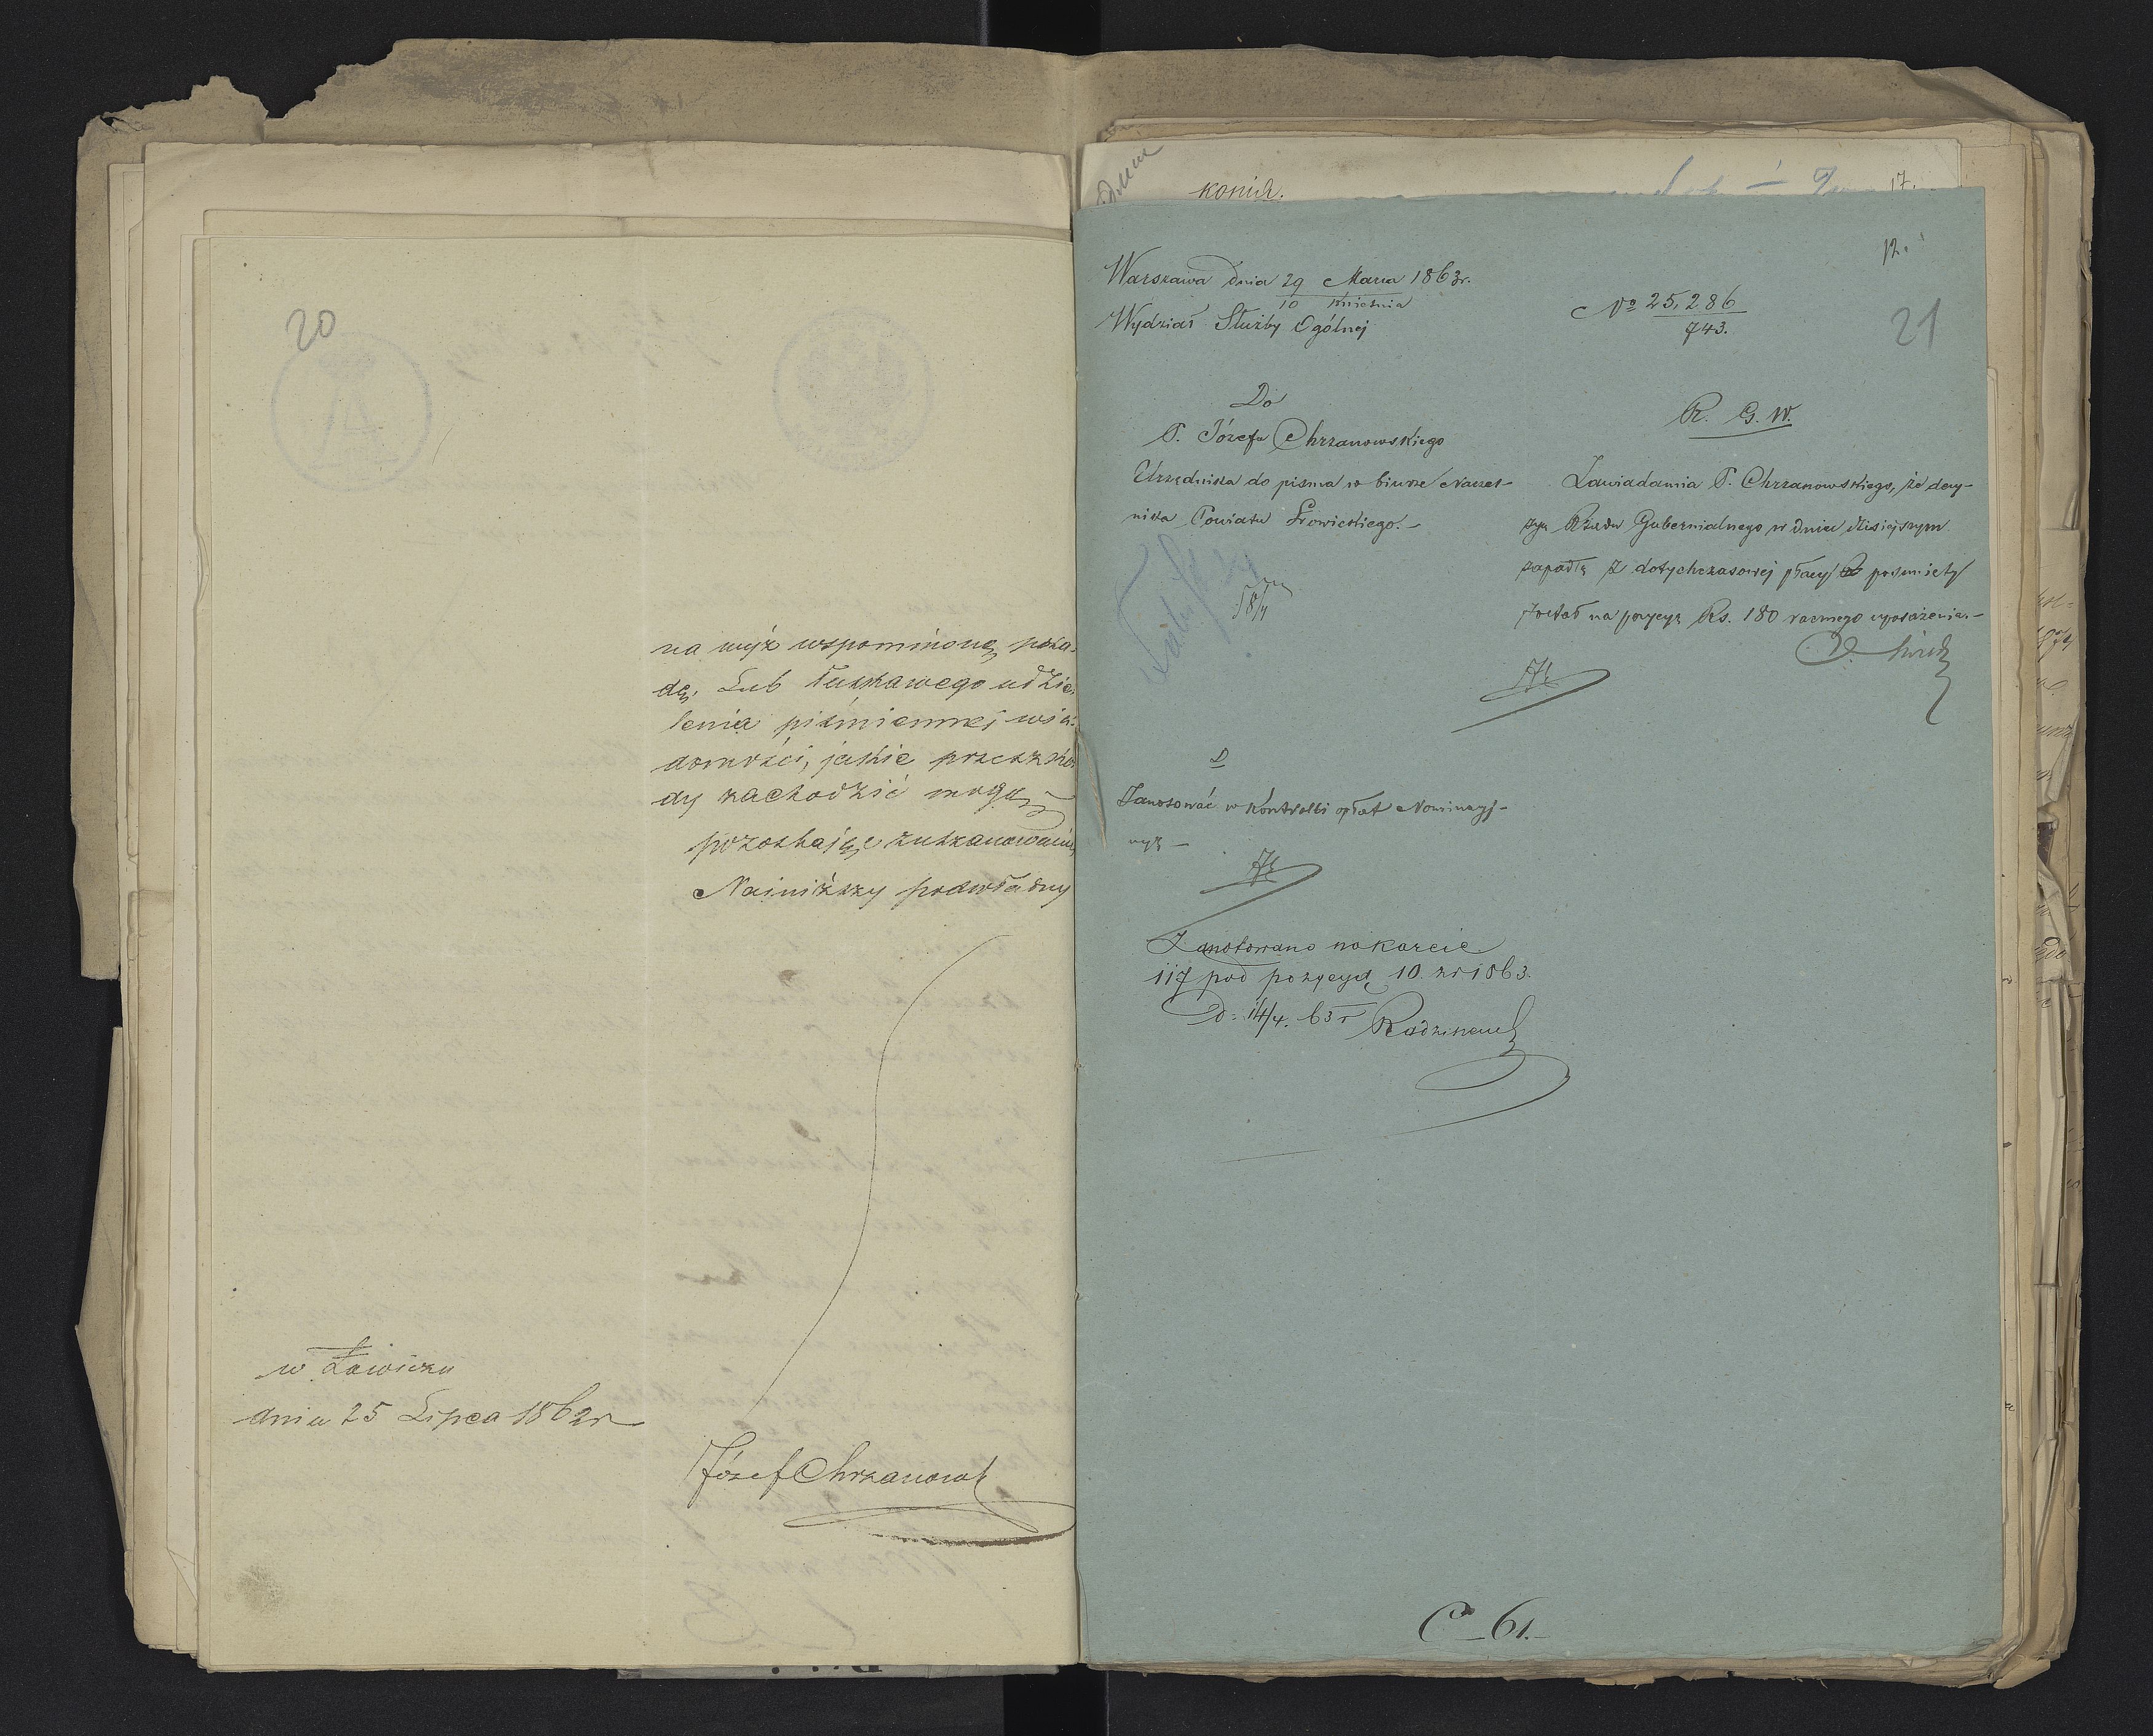 20
na wyż wspomnioną posa-
dę, Lub łaskawego udzie-
lenia piśmiennej wia-
domości, jakie przeszko
dy zachodzić mogą
pozostając z uszanowaniem
Najniższy podwładny
w Łowiczu
dnia 25 Lipca 1862 r
Józef Chrzanowsk
konia.
17.
12.
21
Warszawa dnia 29 Marca 1863 r.
10 Kwietnia
Wydział Służby Ogólnej
No 25,286
743.
Do
P. Józefa Chrzanowskiego
Urzędnika do pisma w biurze Naczel-
nika Powiatu Łowickiego.-
18/4
R. G. W.
Zawiadamia P. Chrzanowskiego, że decy-
zyą Rządu Gubernialnego w dniu dzisiejszym
zapadłą z dotychczasowej płacy posunięty
został na pozycyą Rs. 180 rocznego uposażenia.-
D
Zanotować w kontrolli opłat Nominacyj-
nych -
Zanotowano na karcie
117 pod pozycyą 10. zr 1863.
D: 14/4. 63 r
C-61.-